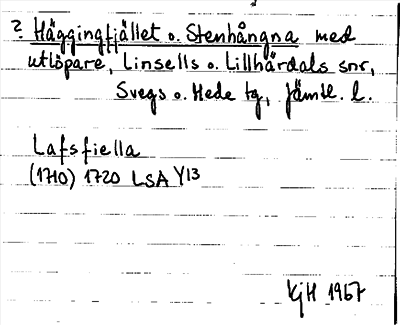 ? Häggingfjället o. Stenhångna med
utlöpare, Linsells o. Lillhärdals snr,
Svegs o. Hede tg, Jämtl. l.
Lafsfiella
(1710) 1720 LSA Y13
KjH 1967